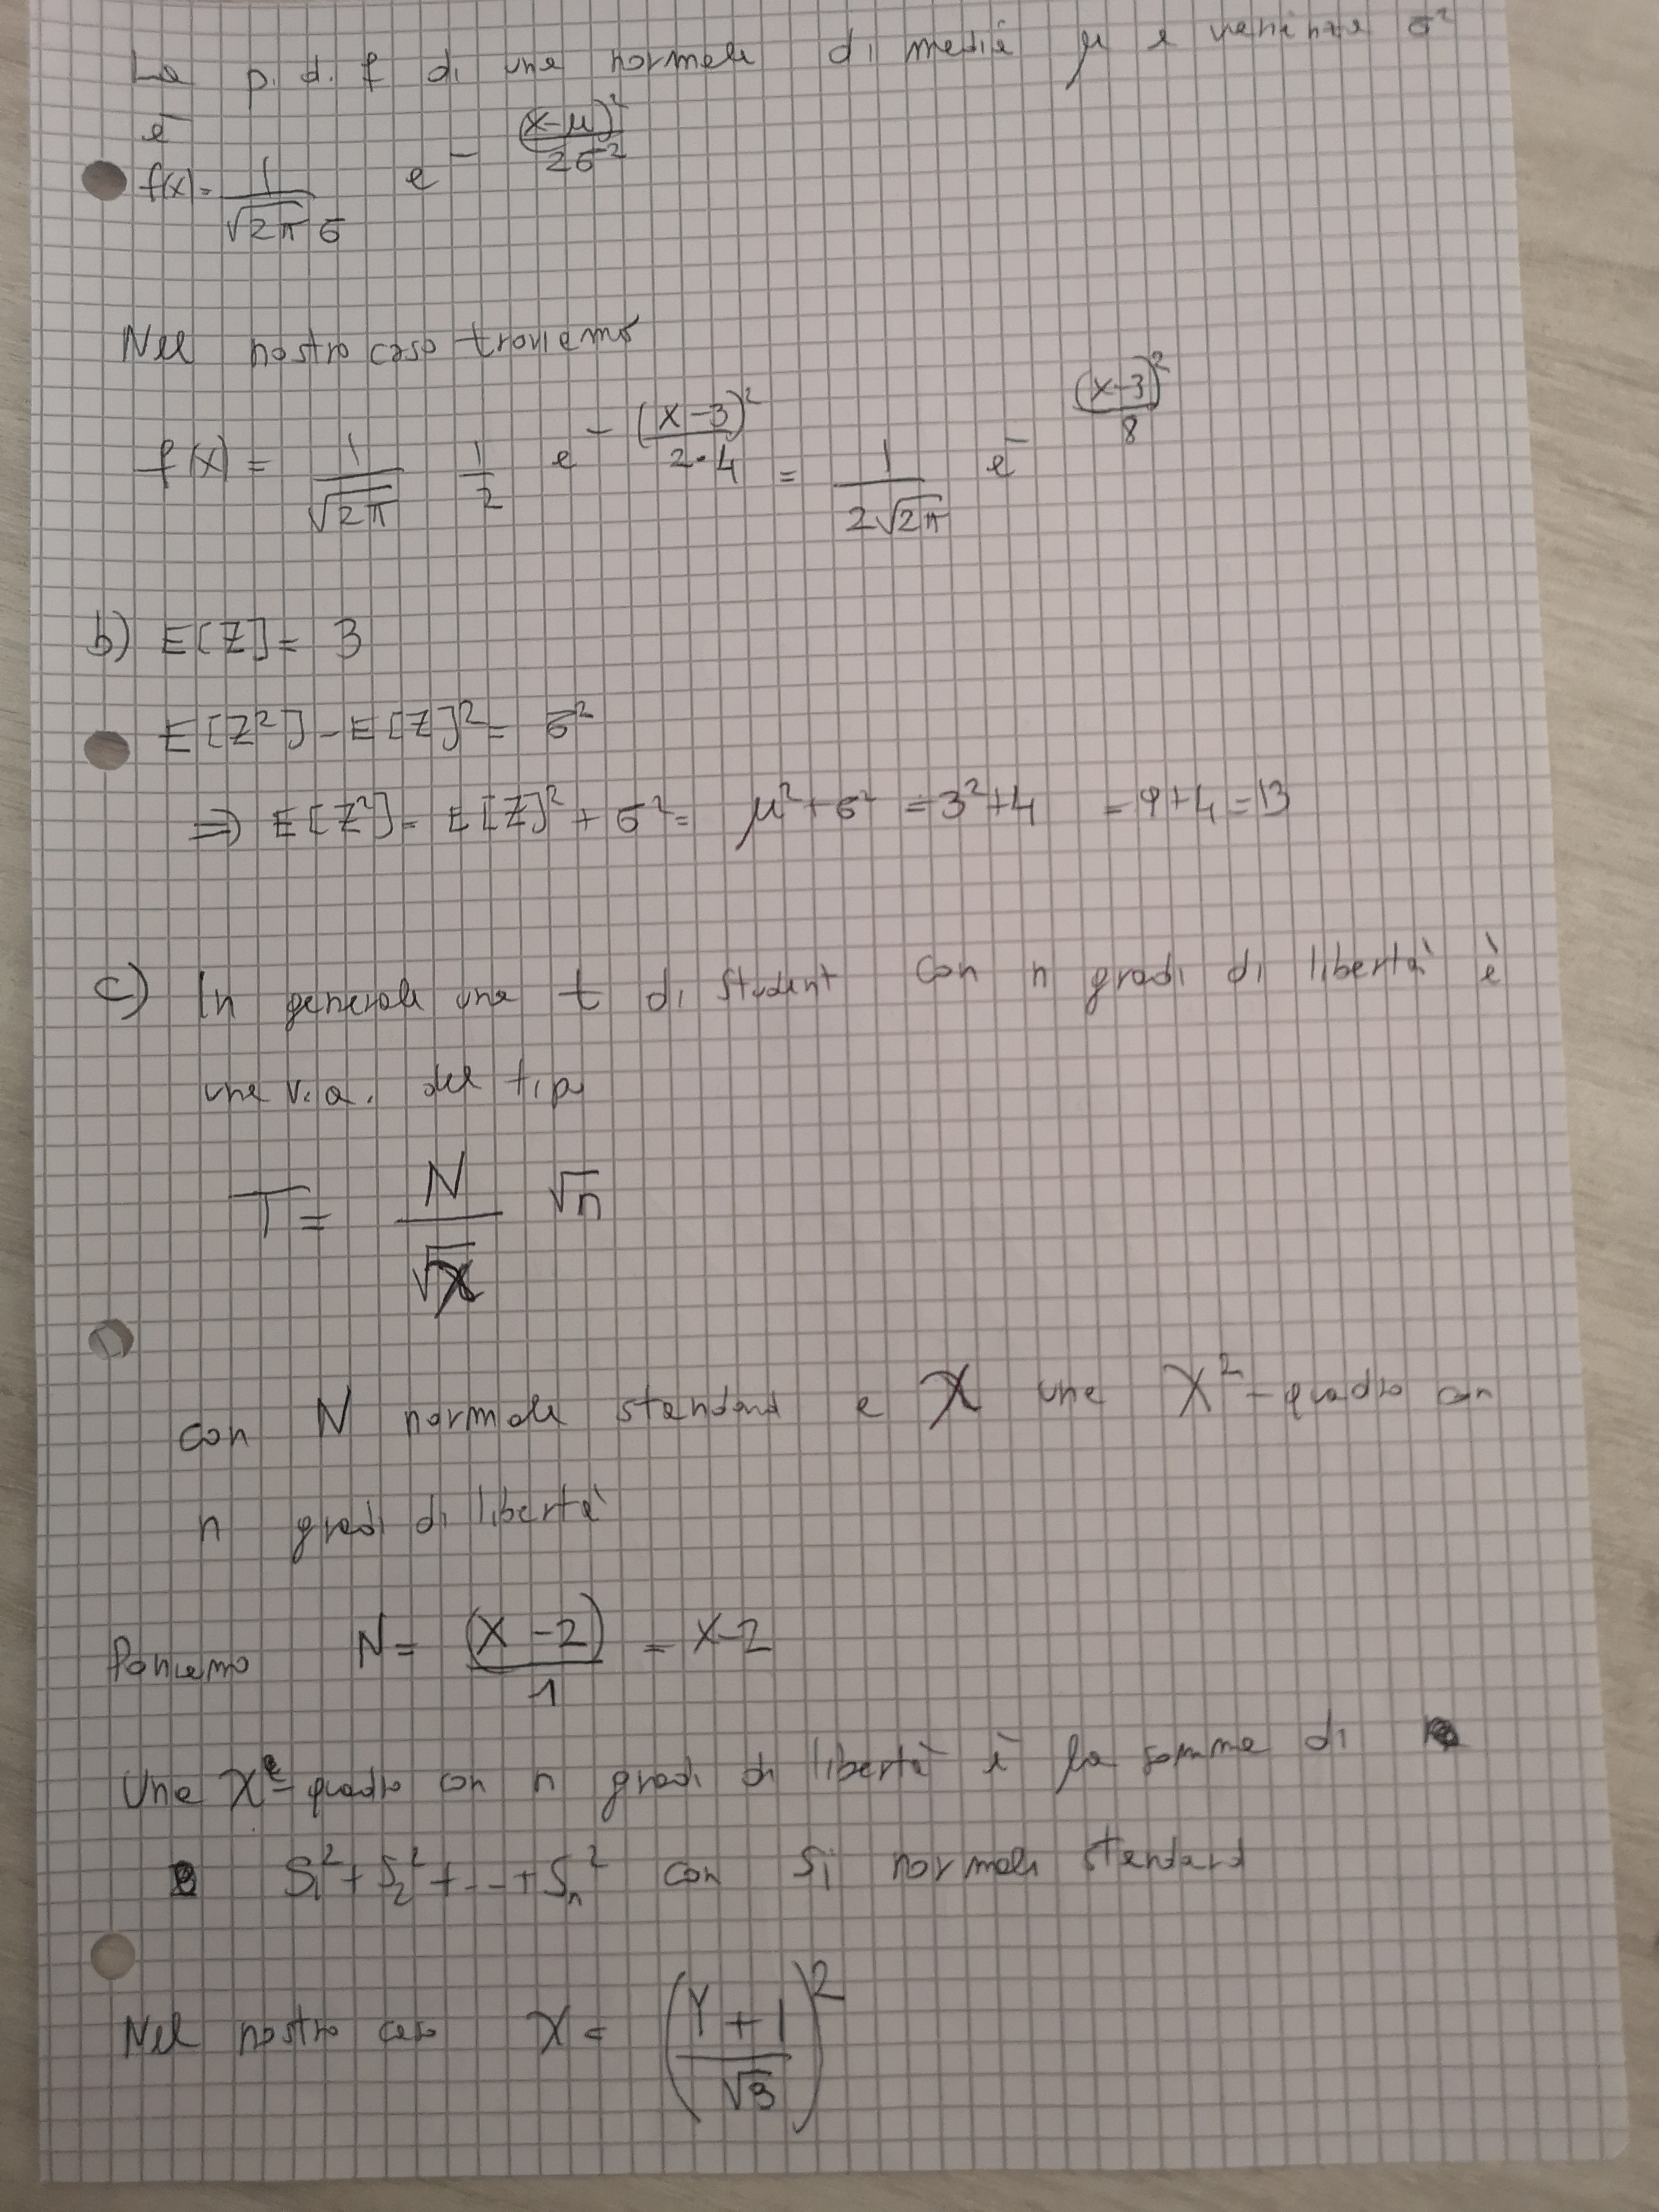 La p.d.f di una normale di media μ e varianza σ²
è
f(x) = 1/(√2π σ) e^-((x-μ)²/2σ²)
Nel nostro caso troviamo
f(x) = 1/√2π 1/2 e^-((x-3)²/2·4) = 1/(2√2π) e^-((x-3)²/8)
b) E[Z] = 3
E[Z²] - E[Z]² = σ²
⇒ E[Z²] = E[Z]² + σ² = μ² + σ² = 3² + 4 = 9 + 4 = 13
c) In generale una t di student con n gradi di libertà è
una v.a. del tipo
T = N/√X √n
con N normale standard e X una X²-quadro con
n gradi di libertà
Poniamo N = (X-2)/1 = X-2
Una X²-quadro con n gradi di libertà è la somma di
S₁² + S₂² + ... + Sₙ² con Si normali standard
Nel nostro caso X = ((Y+1)/√3)²